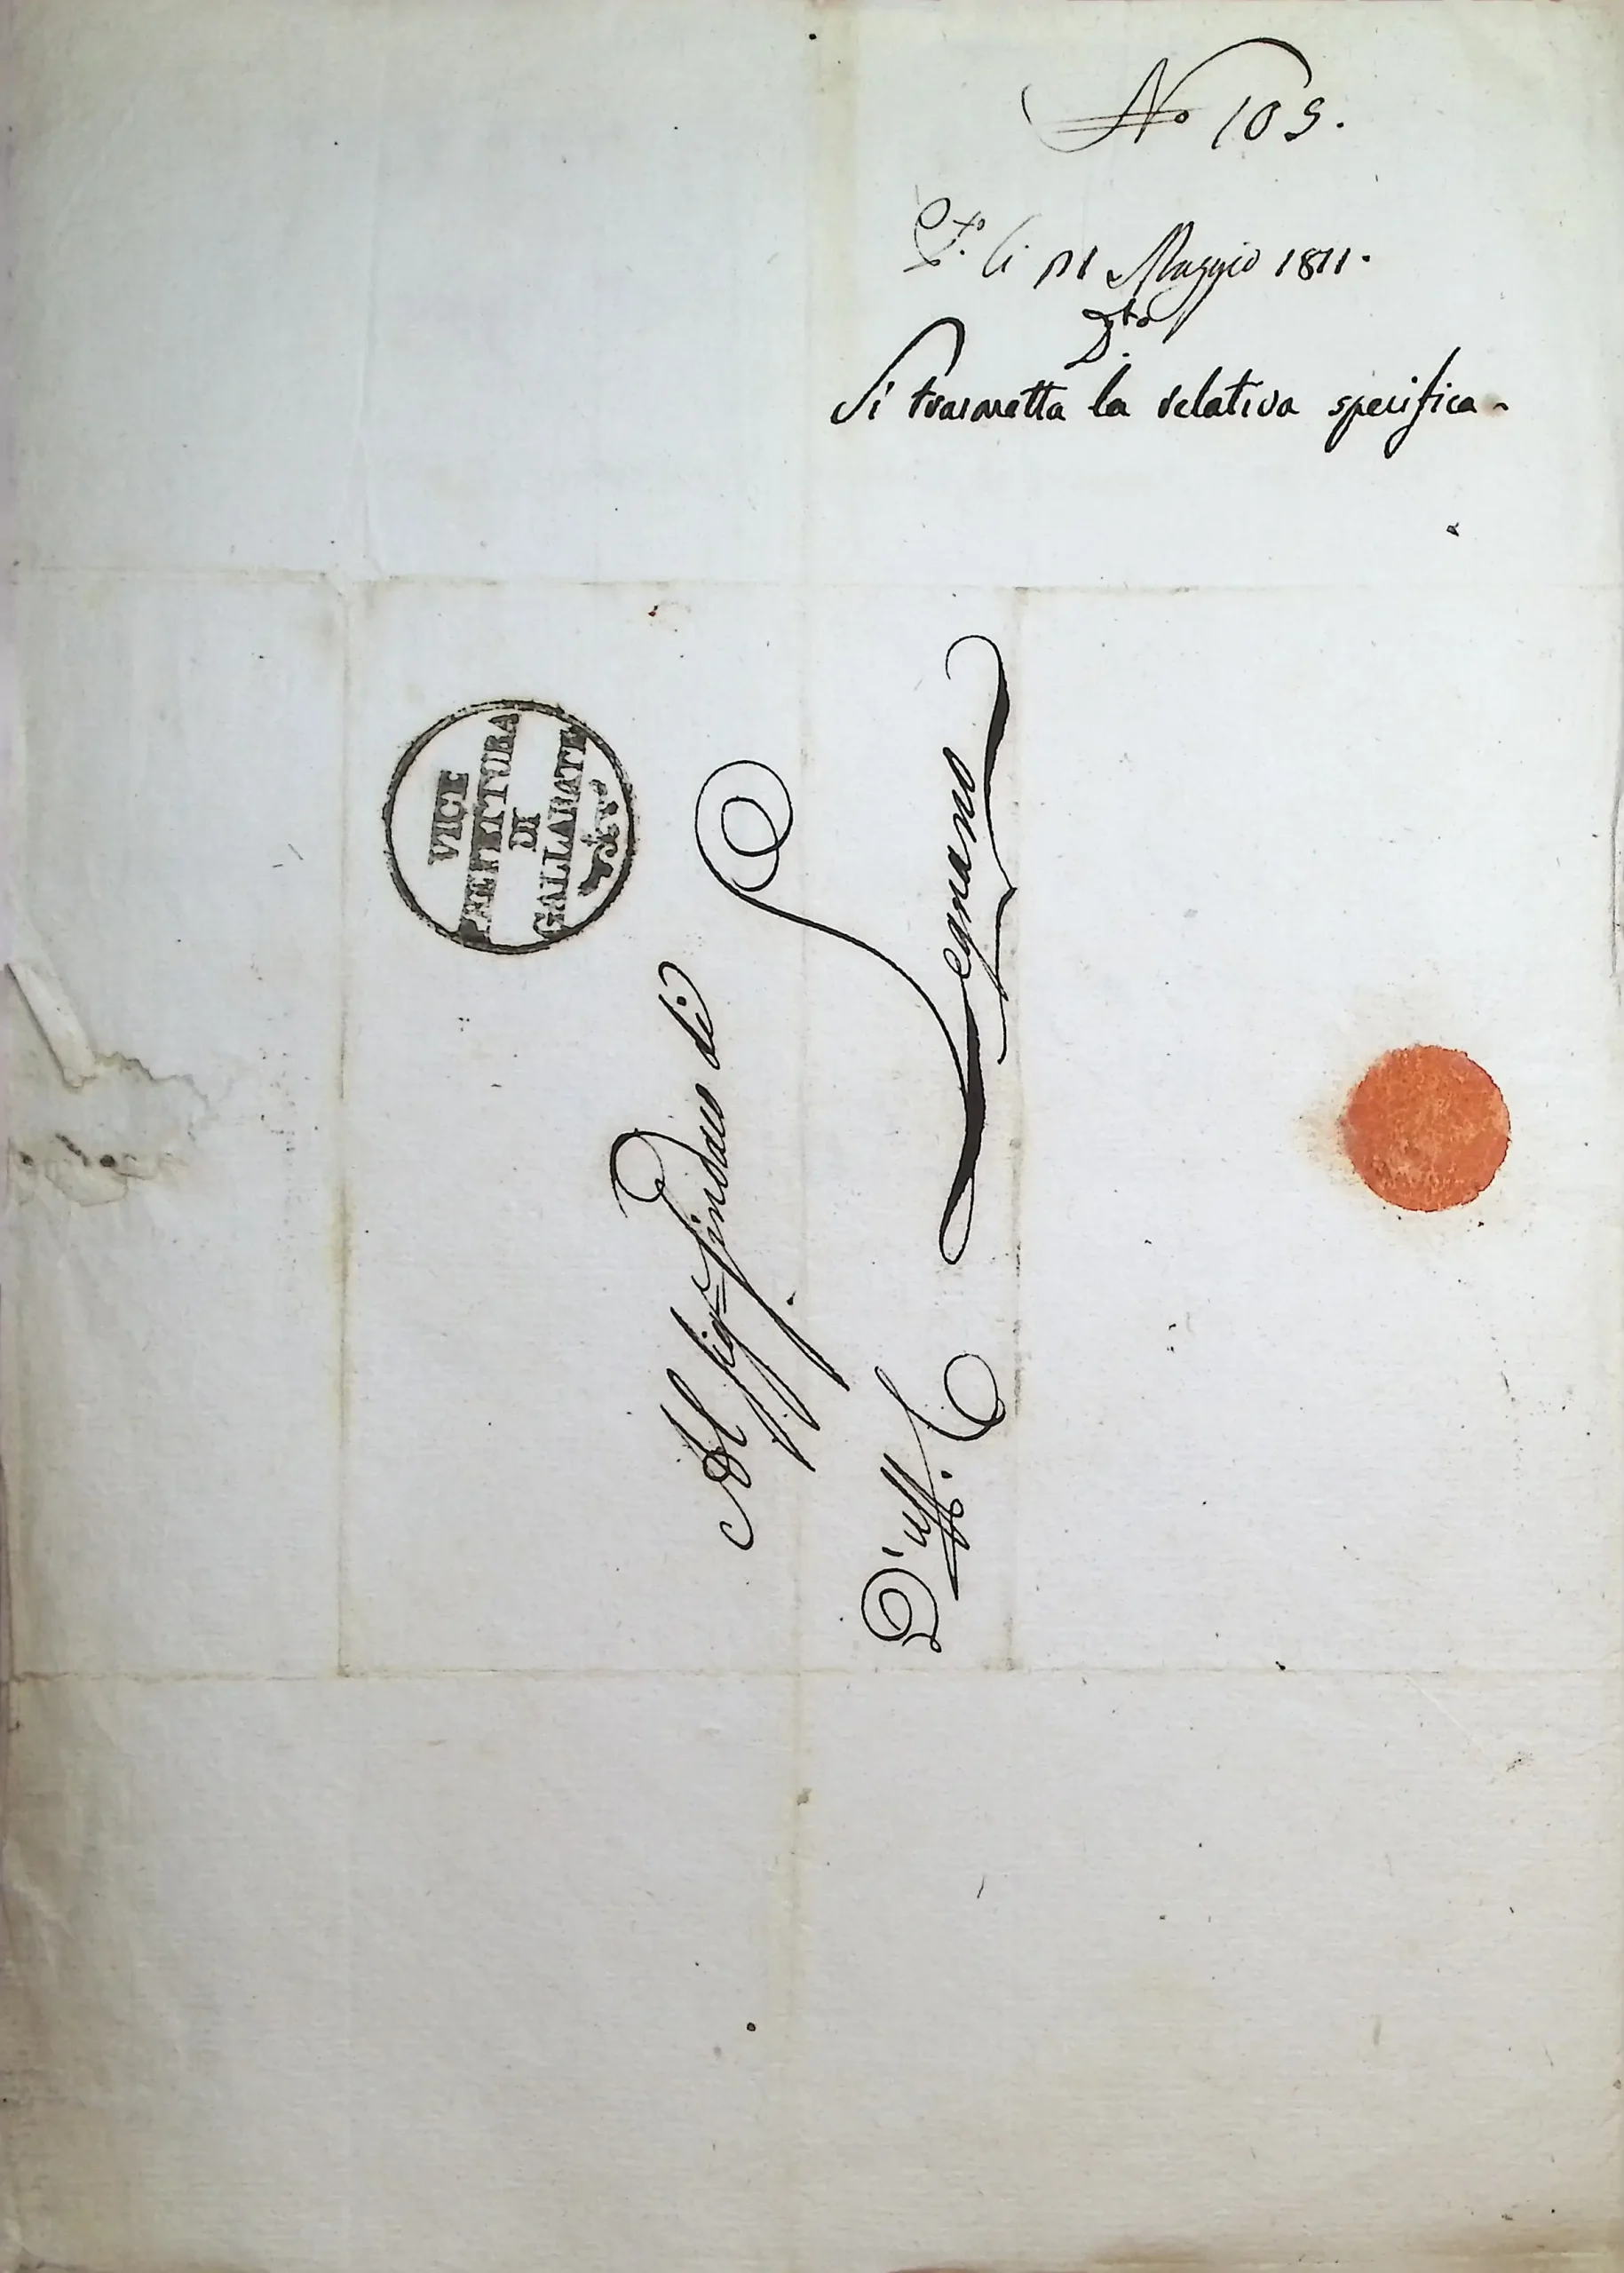 No 109.
li Maggio 1811.
Si trasmetta la relativa specifica
VICE
PREFETTURA
DI
GALLARATE
Al Sig.r Sindaco di
Legnano
D'uff.